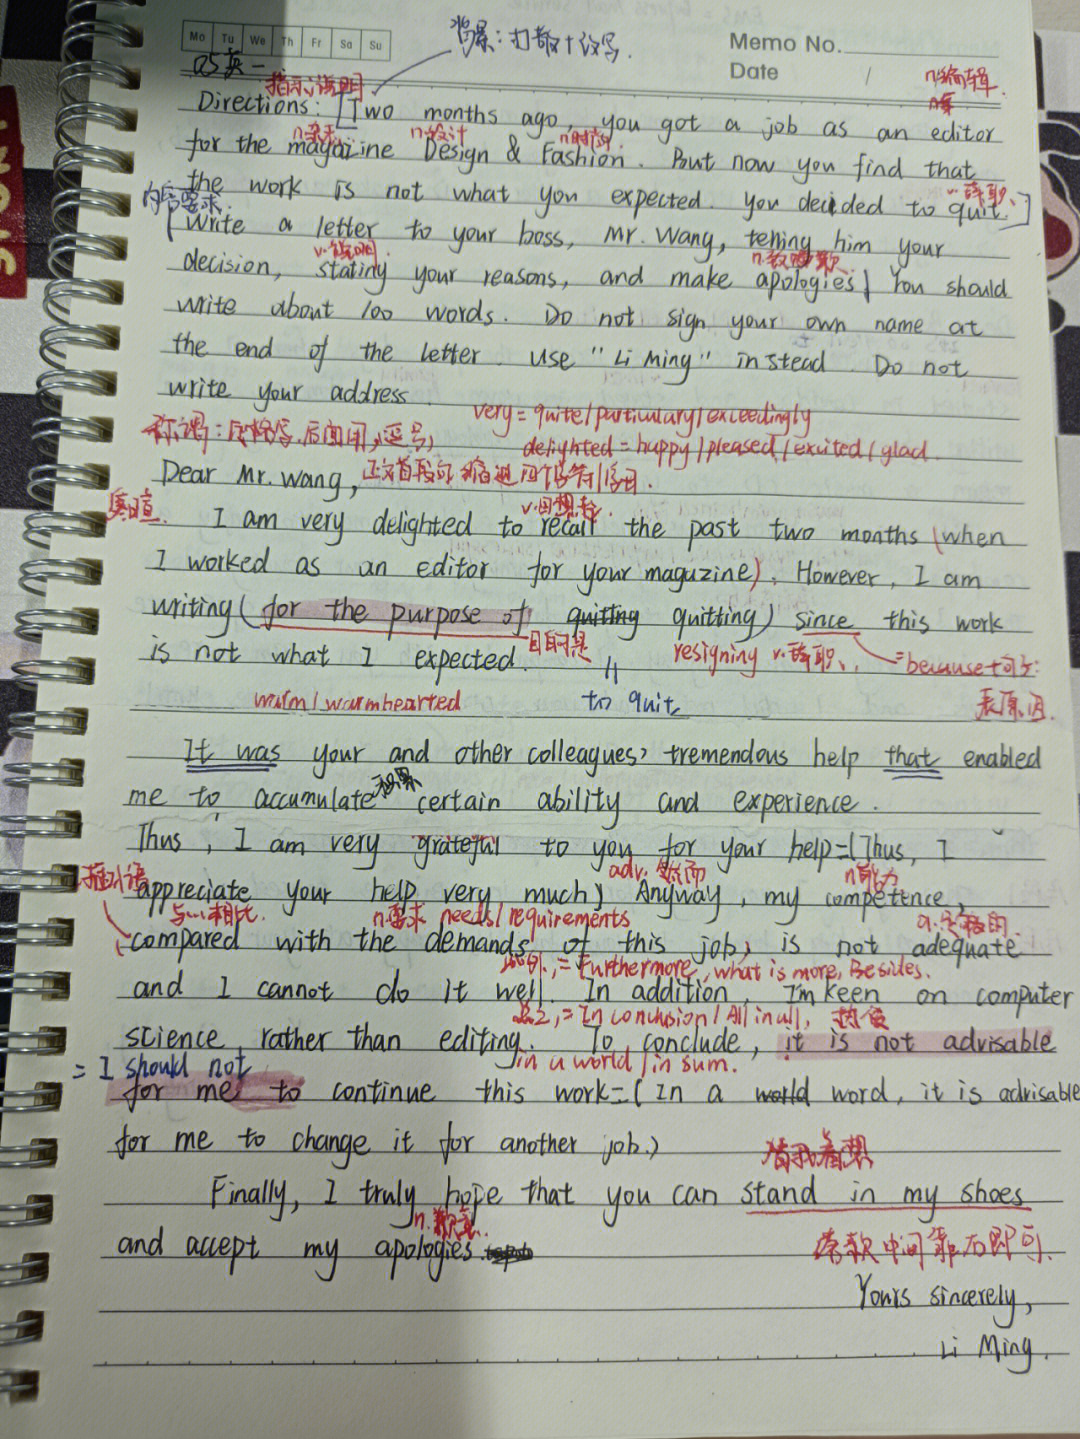 Mo Tu We Th Fr Sa Su
Memo No.
Date /
05英一
背景：打散+改写.
指示，说明
n.编辑.
Directions: [Two months ago, you got a job as an editor
n.杂志 n.设计 n.时尚
for the magazine Design & Fashion. But now you find that
the work is not what you expected. You decided to quit.]
v.辞职、
内容要求.
[Write a letter to your boss, Mr. Wang, telling him your
v.说明. n.致歉
decision, stating your reasons, and make apologies] You should
write about 100 words. Do not sign your own name at
the end of the letter. Use "Li Ming" instead. Do not
write your address.
very = quite/particulary/exceedingly
称谓：后面用，逗号，
delighted = happy/pleased/excited/glad.
Dear Mr. Wang, 正文首段句缩进四个字符/字母.
寒暄. v.回想起.
I am very delighted to recall the past two months (when
I worked as an editor for your maguzine). However, I am
writing (for the purpose of quitting quitting) since this work
is not what I expected. 目的是 resigning v.辞职、 = because+句子:
warm/warmhearted = to quit 表原因.
It was your and other colleagues' tremendous help that enabled
me to accumulate 积累 certain ability and experience.
Thus, I am very grateful to you for your help=(Thus, I
插入语 adv. n.能力
appreciate your help very much) Anyway, my competence,
与…相比. n.要求 needs/requirements
compared with the demands of this job, is not adequate
= Furthermore, what is more, Besides.
and I cannot do it well. In addition, I'm keen on computer
总之, = In conclusion/All in all, 热衷
science rather than editing. To conclude, it is not advisable
= I should not in a world/in sum.
for me to continue this work=(In a world word, it is advisable
for me to change it for another job.)
替我着想
Finally, I truly hope that you can stand in my shoes
n.歉意.
and accept my apologies.
落款中间靠右即可.
Yours sincerely,
Li Ming.